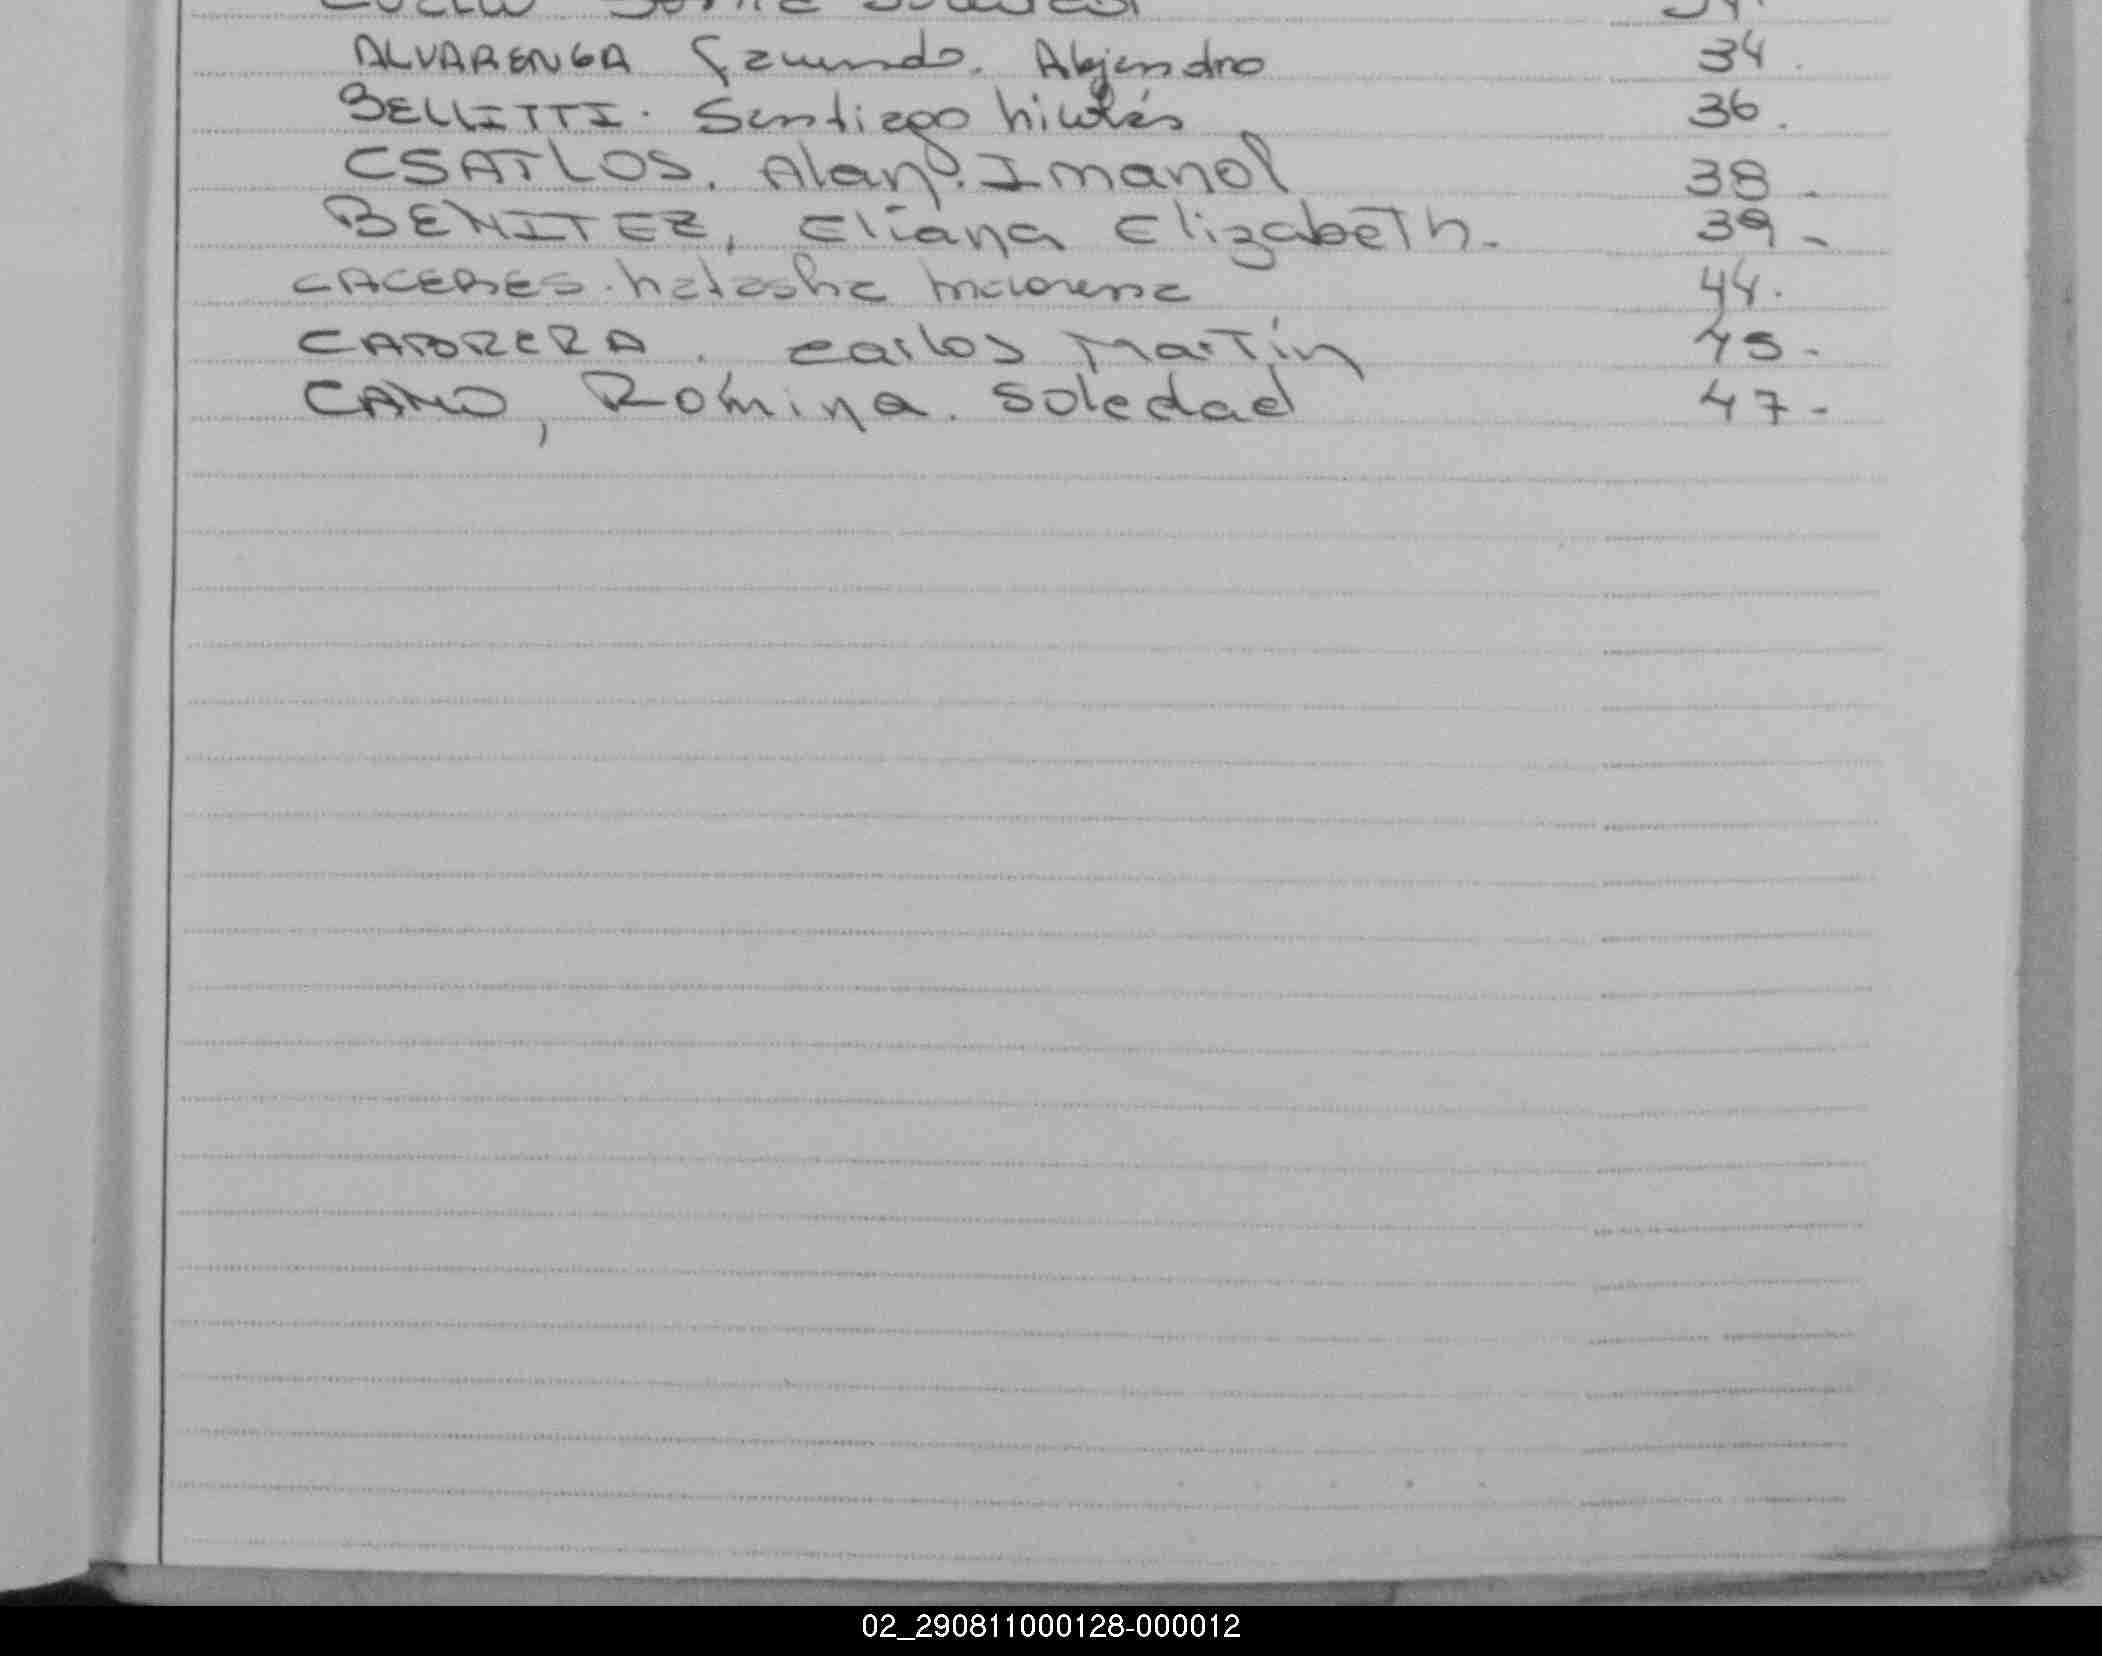 ALVARENGA Facundo. Alejandro 34.
BELLITTI. Santiago Nicolás 36.
CSATLOS. Alan. Imanol 38.
BENITEZ, Eliana Elizabeth. 39-
CACERES. Natasha Macarena 44.
CABRERA. Carlos Martin 45-
CANO, Romina. Soledad 47-
02_290811000128-000012